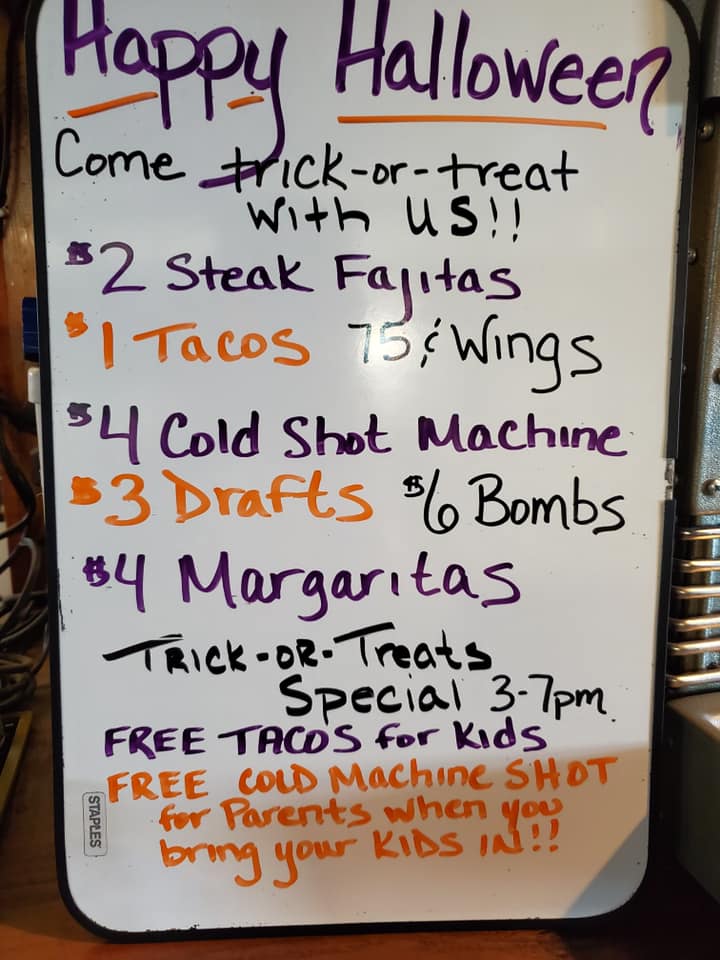 Happy Halloween
Come trick-or-treat
with us!!
$2 Steak Fajitas
$1 Tacos 75¢ Wings
$4 Cold Shot Machine
$3 Drafts $6 Bombs
$4 Margaritas
TRICK-OR-Treats
Special 3-7pm
FREE TACOS for Kids
FREE COLD Machine SHOT
for Parents when you
bring your KIDS IN!!
STAPLES